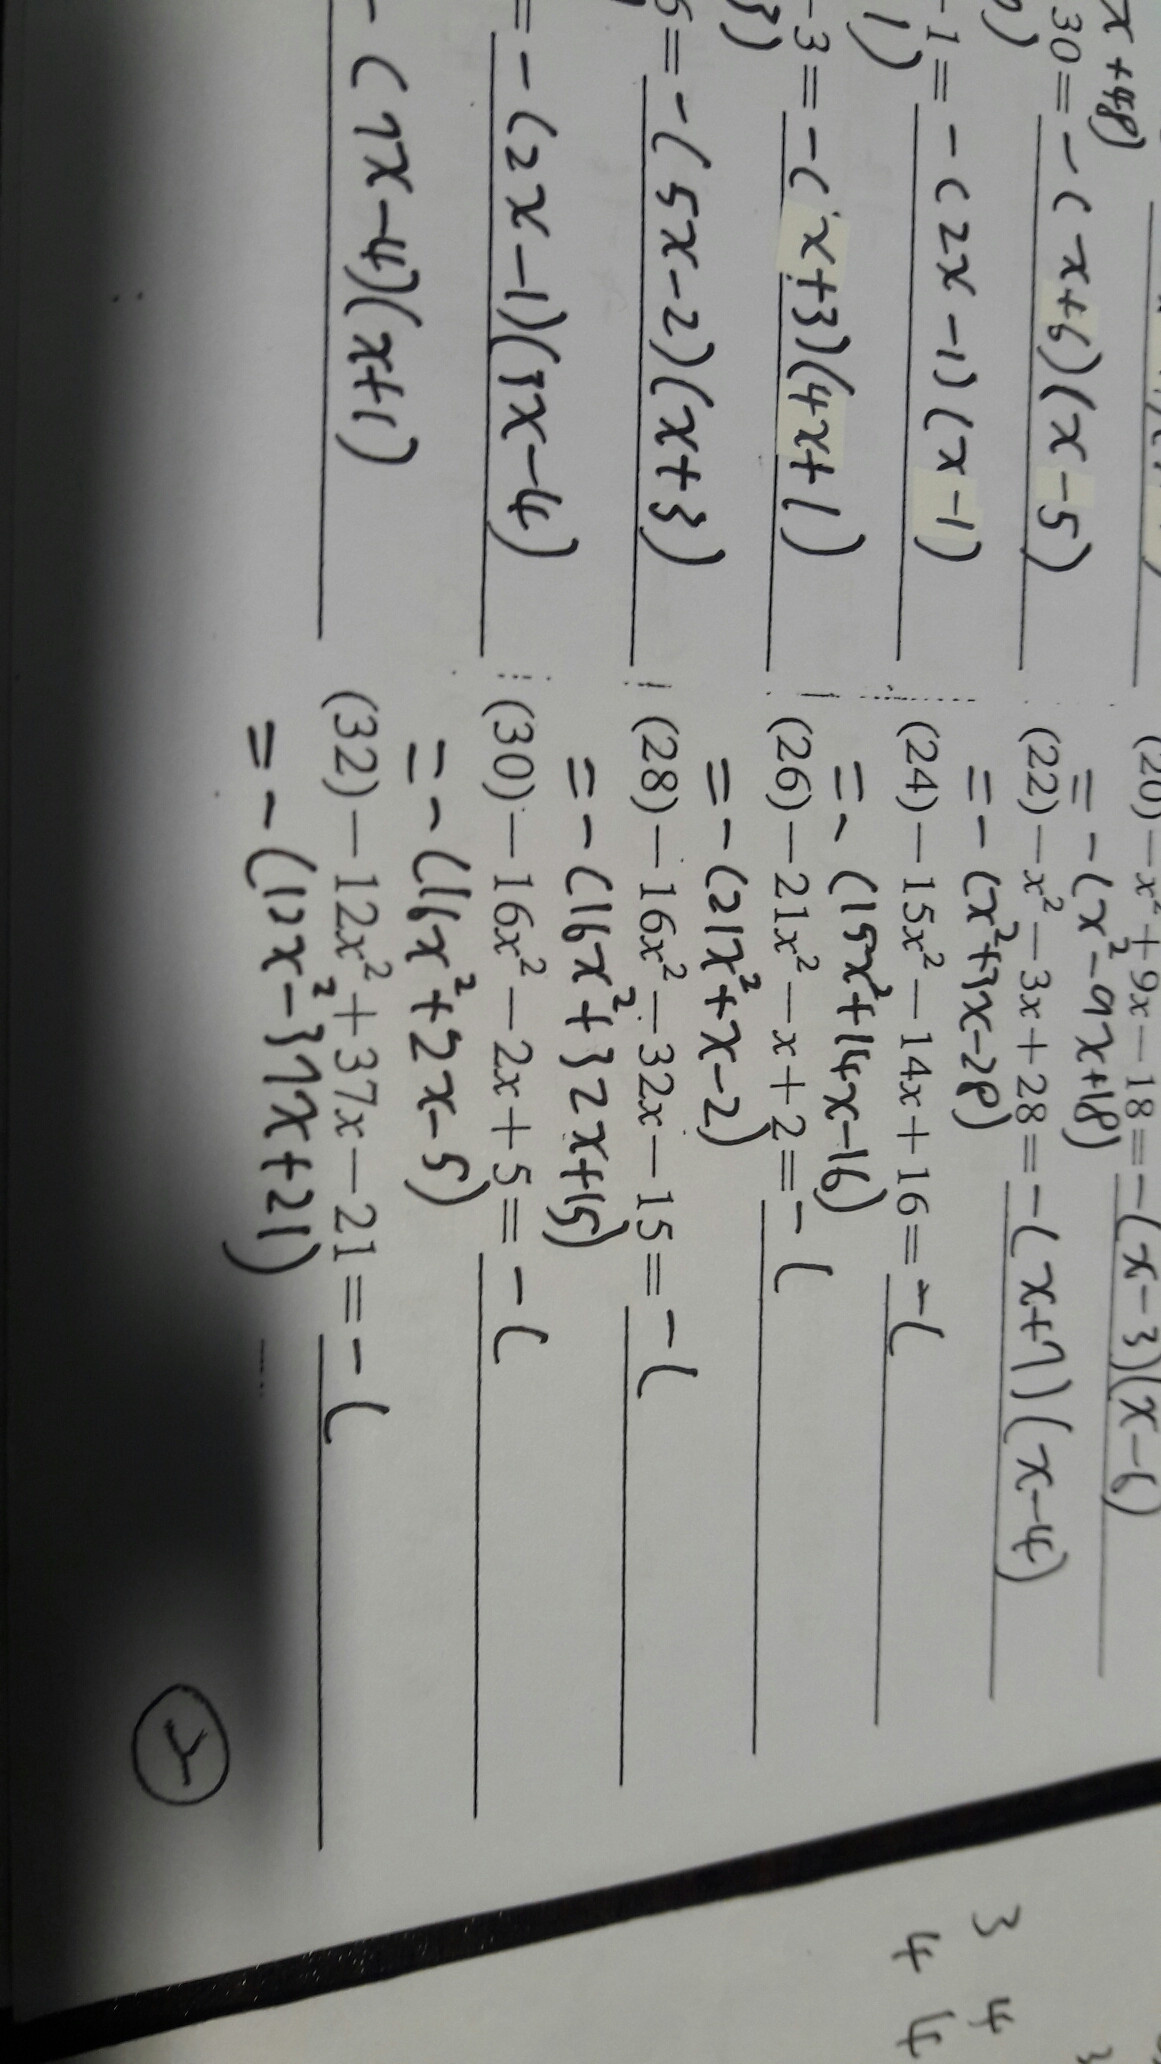 x+48)
30=-(x+6)(x-5)
1=-(2x-1)(x-1)
1)
-3=-(x+3)(4x+1)
3)
=-(5x-2)(x+3)
=-(2x-1)(7x-4)
-(7x-4)(x+1)
(20)-x²+9x-18=-(x-3)(x-6)
=-(x²-9x+18)
(22)-x²-3x+28=-(x+7)(x-4)
=-(x²+3x-28)
(24)-15x²-14x+16=-(
=-(15x²+14x-16)
(26)-21x²-x+2=-(
=-(21x²+x-2)
(28)-16x²-32x-15=-(
=-(16x²+32x+15)
(30)-16x²-2x+5=-(
=-(16x²+2x-5)
(32)-12x²+37x-21=-(
=-(12x²-37x+21)
3 4
4 4